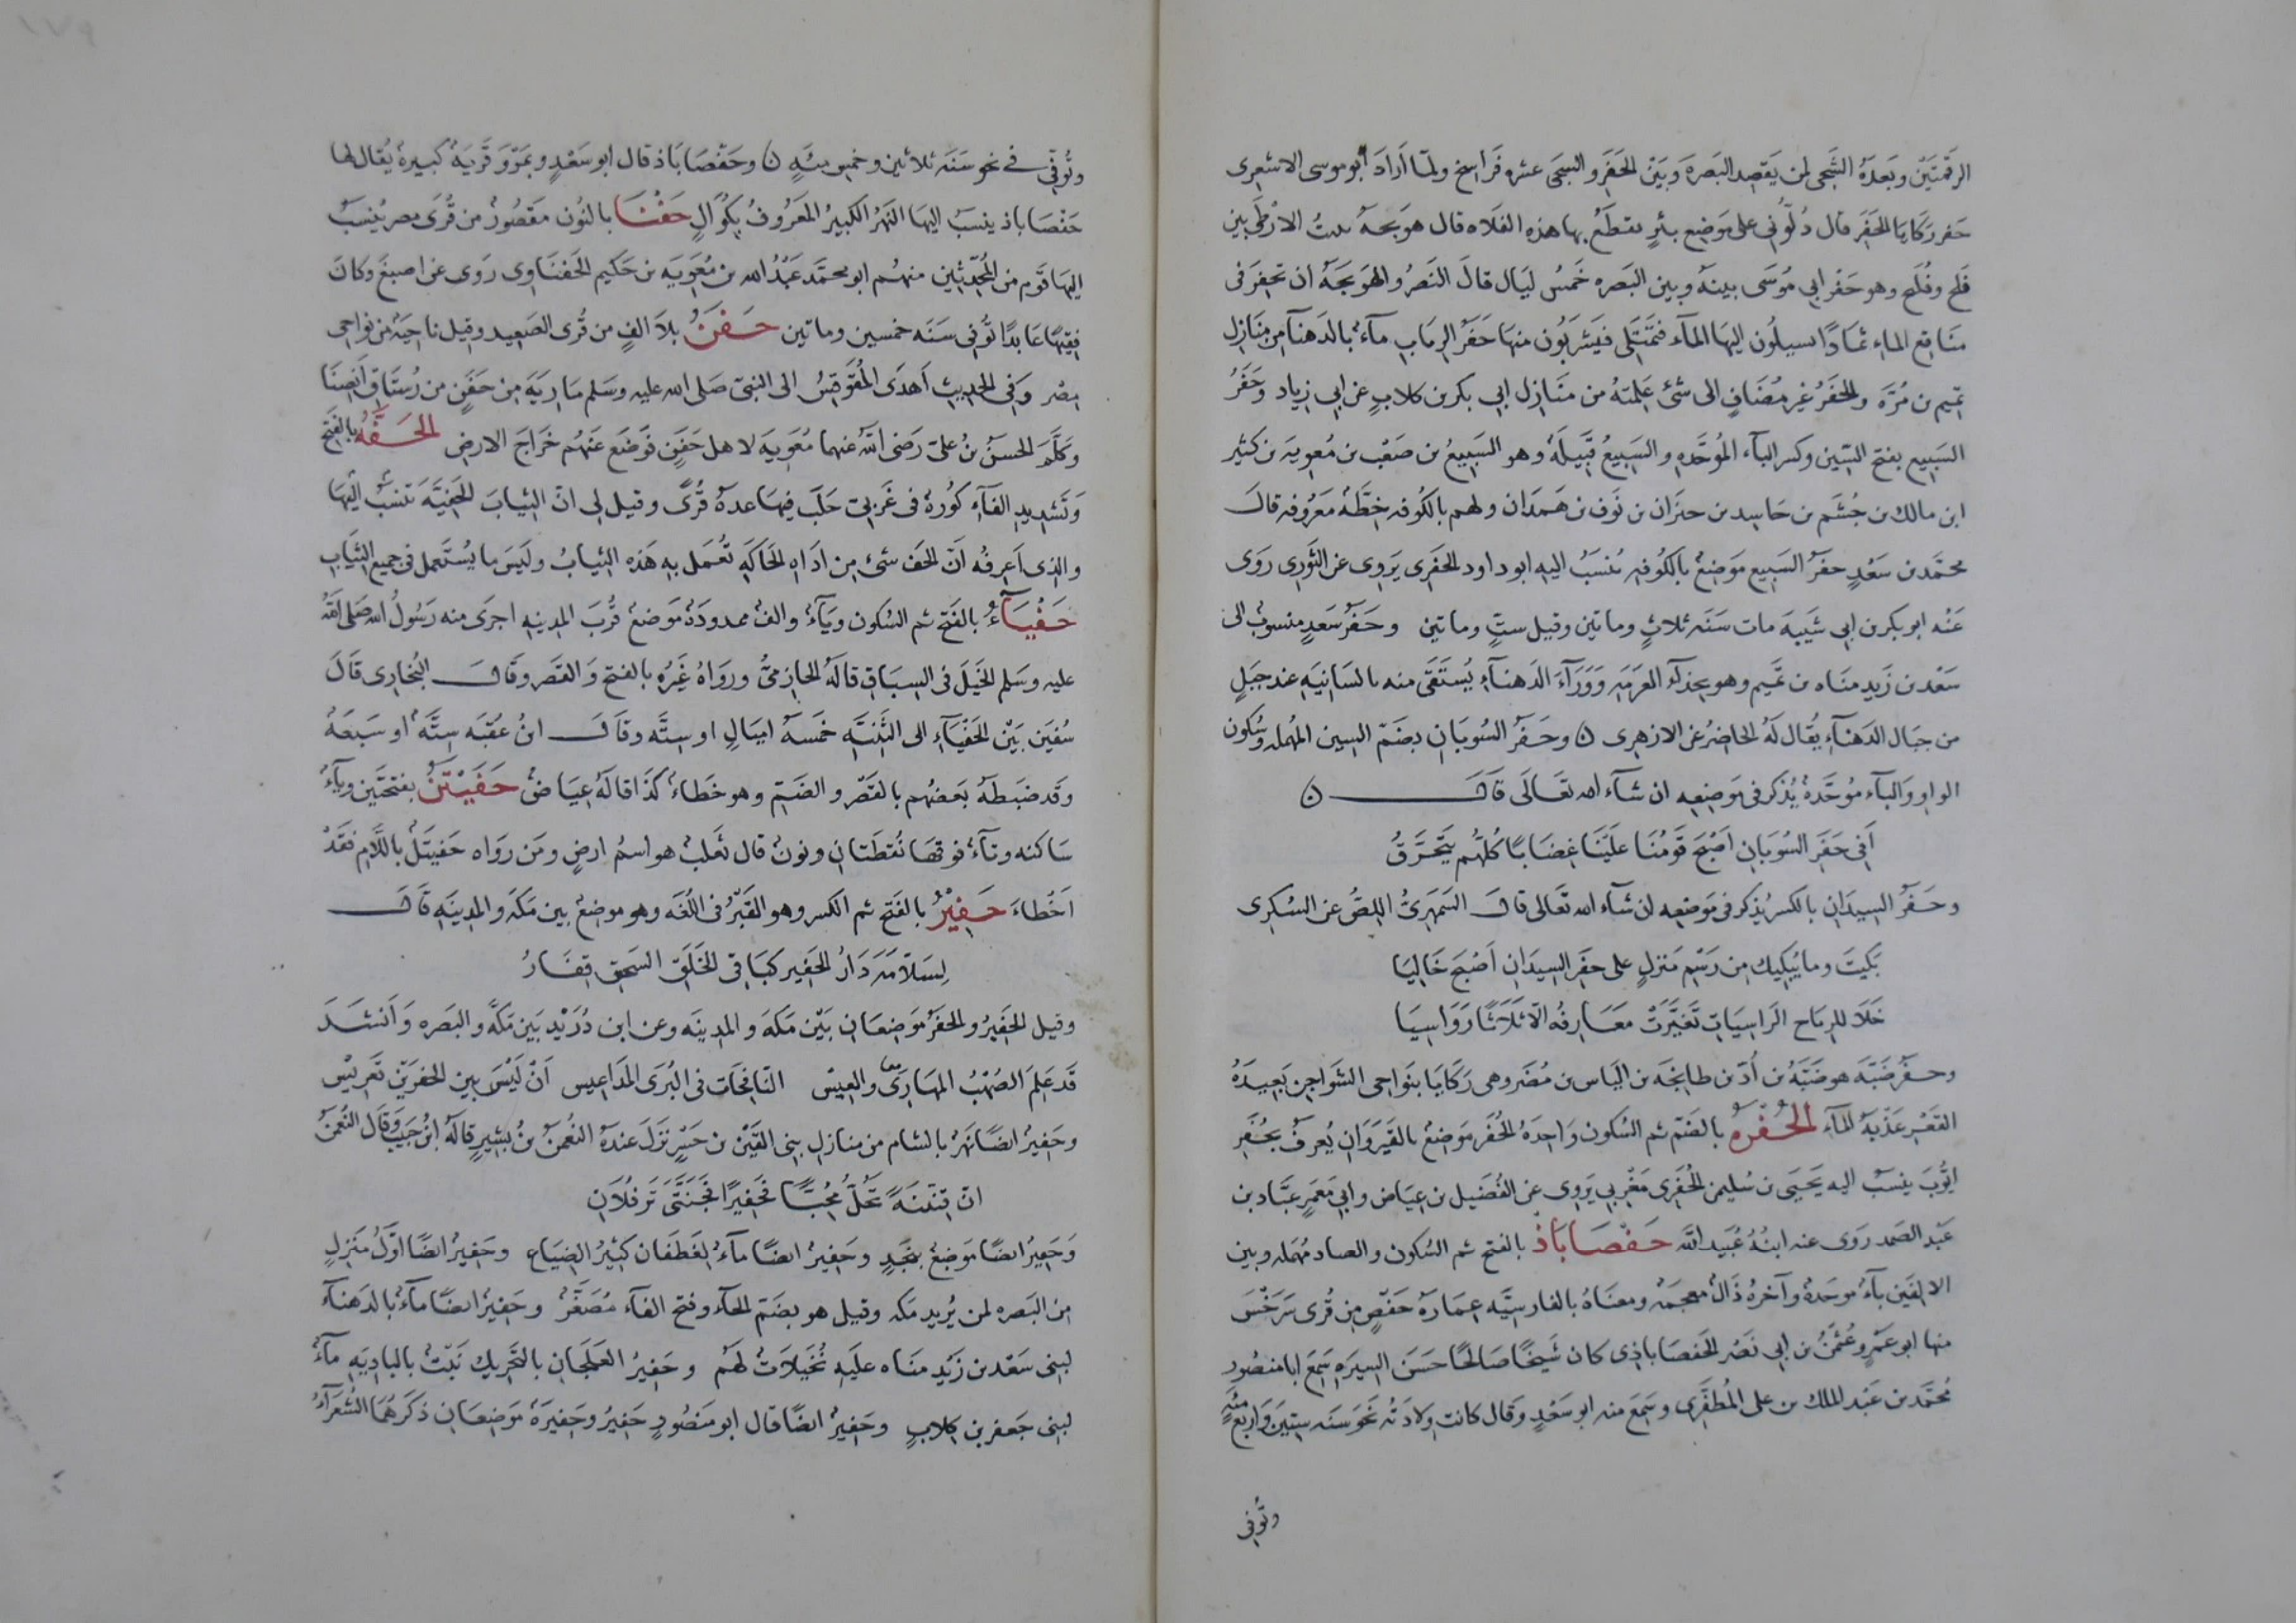 الرقمتين وبعدَهُ الشَّجى لمن يَقصِد البَصَرة وبَيْنَ الحَفَر والسجى عشرة فَرَاسِخ ولمّا اَرادَ ابو موسى الاشعرى
حَفر رَكَايا الحَفَر قال دُلّوُنى على مَوضِع بئرٍ تقطَعُ بها هذه الفلاه قال هَوبجة تنبتُ الارْطَى بين
فَلج وفُلَج وهو حَفَر ابى مُوسَى بينهُ وبين البَصره خَمسُ ليَال قالَ النَضرُ والهَوبجَةُ ان تحفِرَ فى
منَاقع الماءِ ثمَادًا يسيلُون اليَها المآء فتَمتَلى فيَشَربُون منها حَفَرُ الرِبابِ مآءٌ بالدَهنآ من مَنازِل
تميم بن مُرَّه والحَفَرُ غير مُضَافٍ الى شئ عَلمتهُ من مَنَازِل ابى بكر بن كلابٍ عن ابى زياد وحَفَرُ
السَبيع بفتح السّين وكسر البآء الموُحَّدهِ والسَبيعُ قَبيلَةٌ وهو السَبيعُ بن صَعْب بن مُعوية بن كثير
ابن مالك بن جُشَم بن حَاسِد بن حيزَان بن نَوف بن هَمدَان ولهم بالكُوفه خِطَّةٌ مَعَرُوفه قالَ
محمّد بن سَعْدٍ حفَرُ السَبيع مَوضِعٌ بالكُوفهِ يُنسَبُ اليهِ ابو داود الحَفَرى يَروِى عن الثَورِى روَى
عَنه ابو بكر بن ابى شَيبهَ مات سَنَه ثلاثٍ وماتين وقيل ستٍّ وماتين وحَفَرُ سَعدٍ منسوبٌ الى
سَعْد بن زَيد مَناه بن تَميم وهو بحِذآء العَرمَه وَوَرآءَ الدَهنآءِ يُستَقَى منه بالسَانيَهِ عند جَبَلٍ
من جبَال الدَهنَآءِ يُقال لَهُ الحَاضِرُ عن الازهرِى ن وحَفَرُ السُوبَانِ بضَمّ السين المُهلمه وسُكون
الواو وَالبآء مُوحَّدةٌ يُذكَر فى موَضِعِه ان شآء الله تعَالَى قَالَ ن
أَفِى حَفَر السُوبَانِ اَصْبَحَ قَوْمُنَا علَيَنَا غِضَابًا كُلُّهُم يَتَحَرَّقُ
وحَفَرُ السيدَانِ بالكَسر يُذكر فى مَوضِعه ان شآء الله تعَالى قالَ السَمهَرِىُّ اللِصُّ عن السُكرى
بَكَيتَ وما يُبكِيك مِن رَسْمِ مَنزلٍ على حفَر السِيدَانِ اَصْبَحَ خَاليَا
خَلَا للرِياح الرَاسِيَاتِ تَغَيَّرَتْ معَارِفُه الّا ثلَاثًا رَوَاسِيَا
وحَفَرُ ضَبّه هو ضَبّةُ بن أُدّ بن طابخَه بن اليَاس بن مُضَر وهى رَكَايَا بنَوَاحى الشَواجِن بَعيدَهُ
القَعْر عَذْبَهُ المآءِ الحُفْرَهُ بالضَّم ثم السُكون وَاحِدَةُ الحُفَر مَوضِعٌ بالقَيرَوَانِ يُعرفُ بحُفَرِ
ايُّوبَ ينسَبُ اليه يَحيَى بن سُليمن الحُفَرِى مَغْربى يَروِى عن الفُضَيل بن عيَاض وابى مَعمَرٍ عبّاد بن
عَبْد الصَمد روَى عنه ابنُهُ عُبَيد اللَّه حَفصَابَاذُ بالفتح ثم السُكون والصاد مُهمَله وبين
الالِفَين بآءٌ مُوحَدهٌ وآخرهُ ذَالٌ معجمَهٌ ومعنَاهُ بالفَارسيَّه عِمَارَهُ حَفصٍ مِن قُرى سَرَخْسَ
منها ابو عَمْرٍو عُثمَنُ بن ابى نَصر الحَفصَاباذى كان شَيخًا صَالحًا حسَنَ السيرَه سَمِعَ ابا منصُور
مُحمّد بن عَبْد الملك بن على المُظفَّرى وسَمِعَ منه ابو سَعْدٍ وَقال كانت وِلادَتُه نَحَو سَنَه ستِينَ وَاربَع مِئَهٍ
وتُوفى
وتُوفّى فى نحو سَنَه ثلاثين وخمس مِئهٍ ن وحَفْصَابَاذ قال ابو سَعْدٍ وبمَرْوَ قَريَهٌ كبيرهٌ يُقال لها
حَفْصَاباذ ينسَبُ اليهَا النَهرُ الكَبيرُ المعَرُوفُ بكَوّالٍ حَفْنَا بالنُون مَقصُورٌ من قُرَى مصر يُنسَبُ
اليهَا قَوم من المُحِدّثِين منهُم ابو محمّد عَبْدُ الله بن مُعَويَه بن حَكيم الحَفنَاوى رَوى عن اصبغَ وكانَ
فقيهًا عَابدًا تُوفى سَنَه خمسين وماتين حَفَنُ بلا الفٍ من قُرى الصَعِيد وقيل ناحِيَهٌ من نواحى
مِصْر وَفى الحديث اَهدَى المُقَوقِسُ الى النبىّ صَلى الله عليه وسَلم مَارِيَهَ مِن حَفَنٍ من رُستَاقِ اَنصِنَا
وكَلَّمَ الحسَنُ بنُ علىّ رَضى اللَّه عنهما مُعَوِيَه لاهل حَفَنٍ فَوضَع عَنهُم خَرَاجَ الارضِ الحَفَّهُ بالفَتح
وَتَشديدِ الفَآءِ كُورهٌ فى غَربىّ حَلَب فيهَا عدهُ قُرًى وقيل لى انّ الثيابَ الحَفيَّهَ تنسَبُ اليهَا
والذى اَعرِفُه اَنّ الحَف شئ مِن ادَاهِ الحَاكَهِ تُعمَل بهِ هَذه الثيابُ ولَيسَ ما يُستَعمل فى جميع الثيَابِ
حَفْيَآءُ بالفَتح ثم السُكون ويَآءٌ والفٌ ممدودَةٌ مَوضعٌ قُربَ المدِينهِ اجرَى منه رَسُولُ الله صَلى اللَّه
عليه وسَلم الخَيلَ فى السِبَاقِ قالَهُ الحَازِمىُّ وروَاهُ غَيرُه بالفتح وَالقَصر وقَالَ البُخارى قالَ
سُفيَن بَيْن الحَفْيَآءِ الى الثَنيَّهِ خَمسَهُ اميَالٍ او ستّه وقَالَ ابنُ عُقبَه سِتَّهٌ او سَبعَهُ
وقَد ضَبطهُ بعضُهم بالقَصْر والضَمّ وهو خَطَاءٌ كذَا قالَهُ عيَاضٌ حَفَيْتَنُ بفتحَتين ويآءٌ
سَاكنه وتآءٌ فوقهَا نُقطَتانِ ونونٌ قال ثَعلَبٌ هو اسمُ ارضٍ ومَن روَاه حَفيتَلُ باللَّامِ فقَدْ
اَخْطَاءَ حَفِيْرٌ بالفَتح ثم الكسر وهو القَبْرُ فى اللُغَه وهو موضعٌ بين مكَه والمدِينَهِ قَالَ
لِسَلاَّمَهَ دَارُ الحَفِير كبَاقى الخَلَقِ السَحِقِ قِفَارُ
وقيل الحَفِيرُ والحَفَرُ موَضِعَانِ بَيْن مَكهَ والمدينَه وعن ابن دُرَيْد بَين مَكّهَ والبَصَره وَاَنشَدَ
قَد عَلِمَ الصُهْبُ المهَارَى والعِيسْ النّافخَات فى البُرَى المَدَاعيس اَنْ لَيْسَ بين الحفرَيْن تعَريْس
وحَفِيرٌ ايضًا نَهرٌ بالشام من منازلِ بنى القَيْن بن حَسْرٍ نَزَلَ عندهُ النُعمنُ بنُ بَشِيرٍ قالَهُ ابنُ حَبيب وَقال النُعمَنُ
انّ قَيْنَيّهً تحُلُّ مُحِبًّا فحَفِيرًا فجَنَّتَى تَرفُلَانِ
وَحَفِيرٌ ايضًا مَوضعٌ بنَجْدٍ وحَفِيرٌ ايضًا مآءٌ لغَطَفَان كثيرُ الضيَاع وحَفِيرٌ ايضًا اوّلُ مَنزلٍ
مِن البَصره لمن يُريد مكه وقيل هو بضَمّ الحآء وفتح الفَآء مُصَغَّرٌ وحَفِيرٌ ايضًا مآءٌ بالدَهنآء
لبنى سَعْد بن زَيد منَاه علَيهِ نُخَيلَاتٌ لهَم وحَفِيرُ العَلَجَانِ بالتَحريك نَبْتٌ بالباديَهِ مآءٌ
لبنى جَعفر بن كِلابٍ وحَفِيرٌ ايضًا قال ابو مَنصُورٍ حَفِيرٌ وحَفِيرَهٌ مَوضِعَانِ ذكَرهُمَا الشُعَرَآءُ